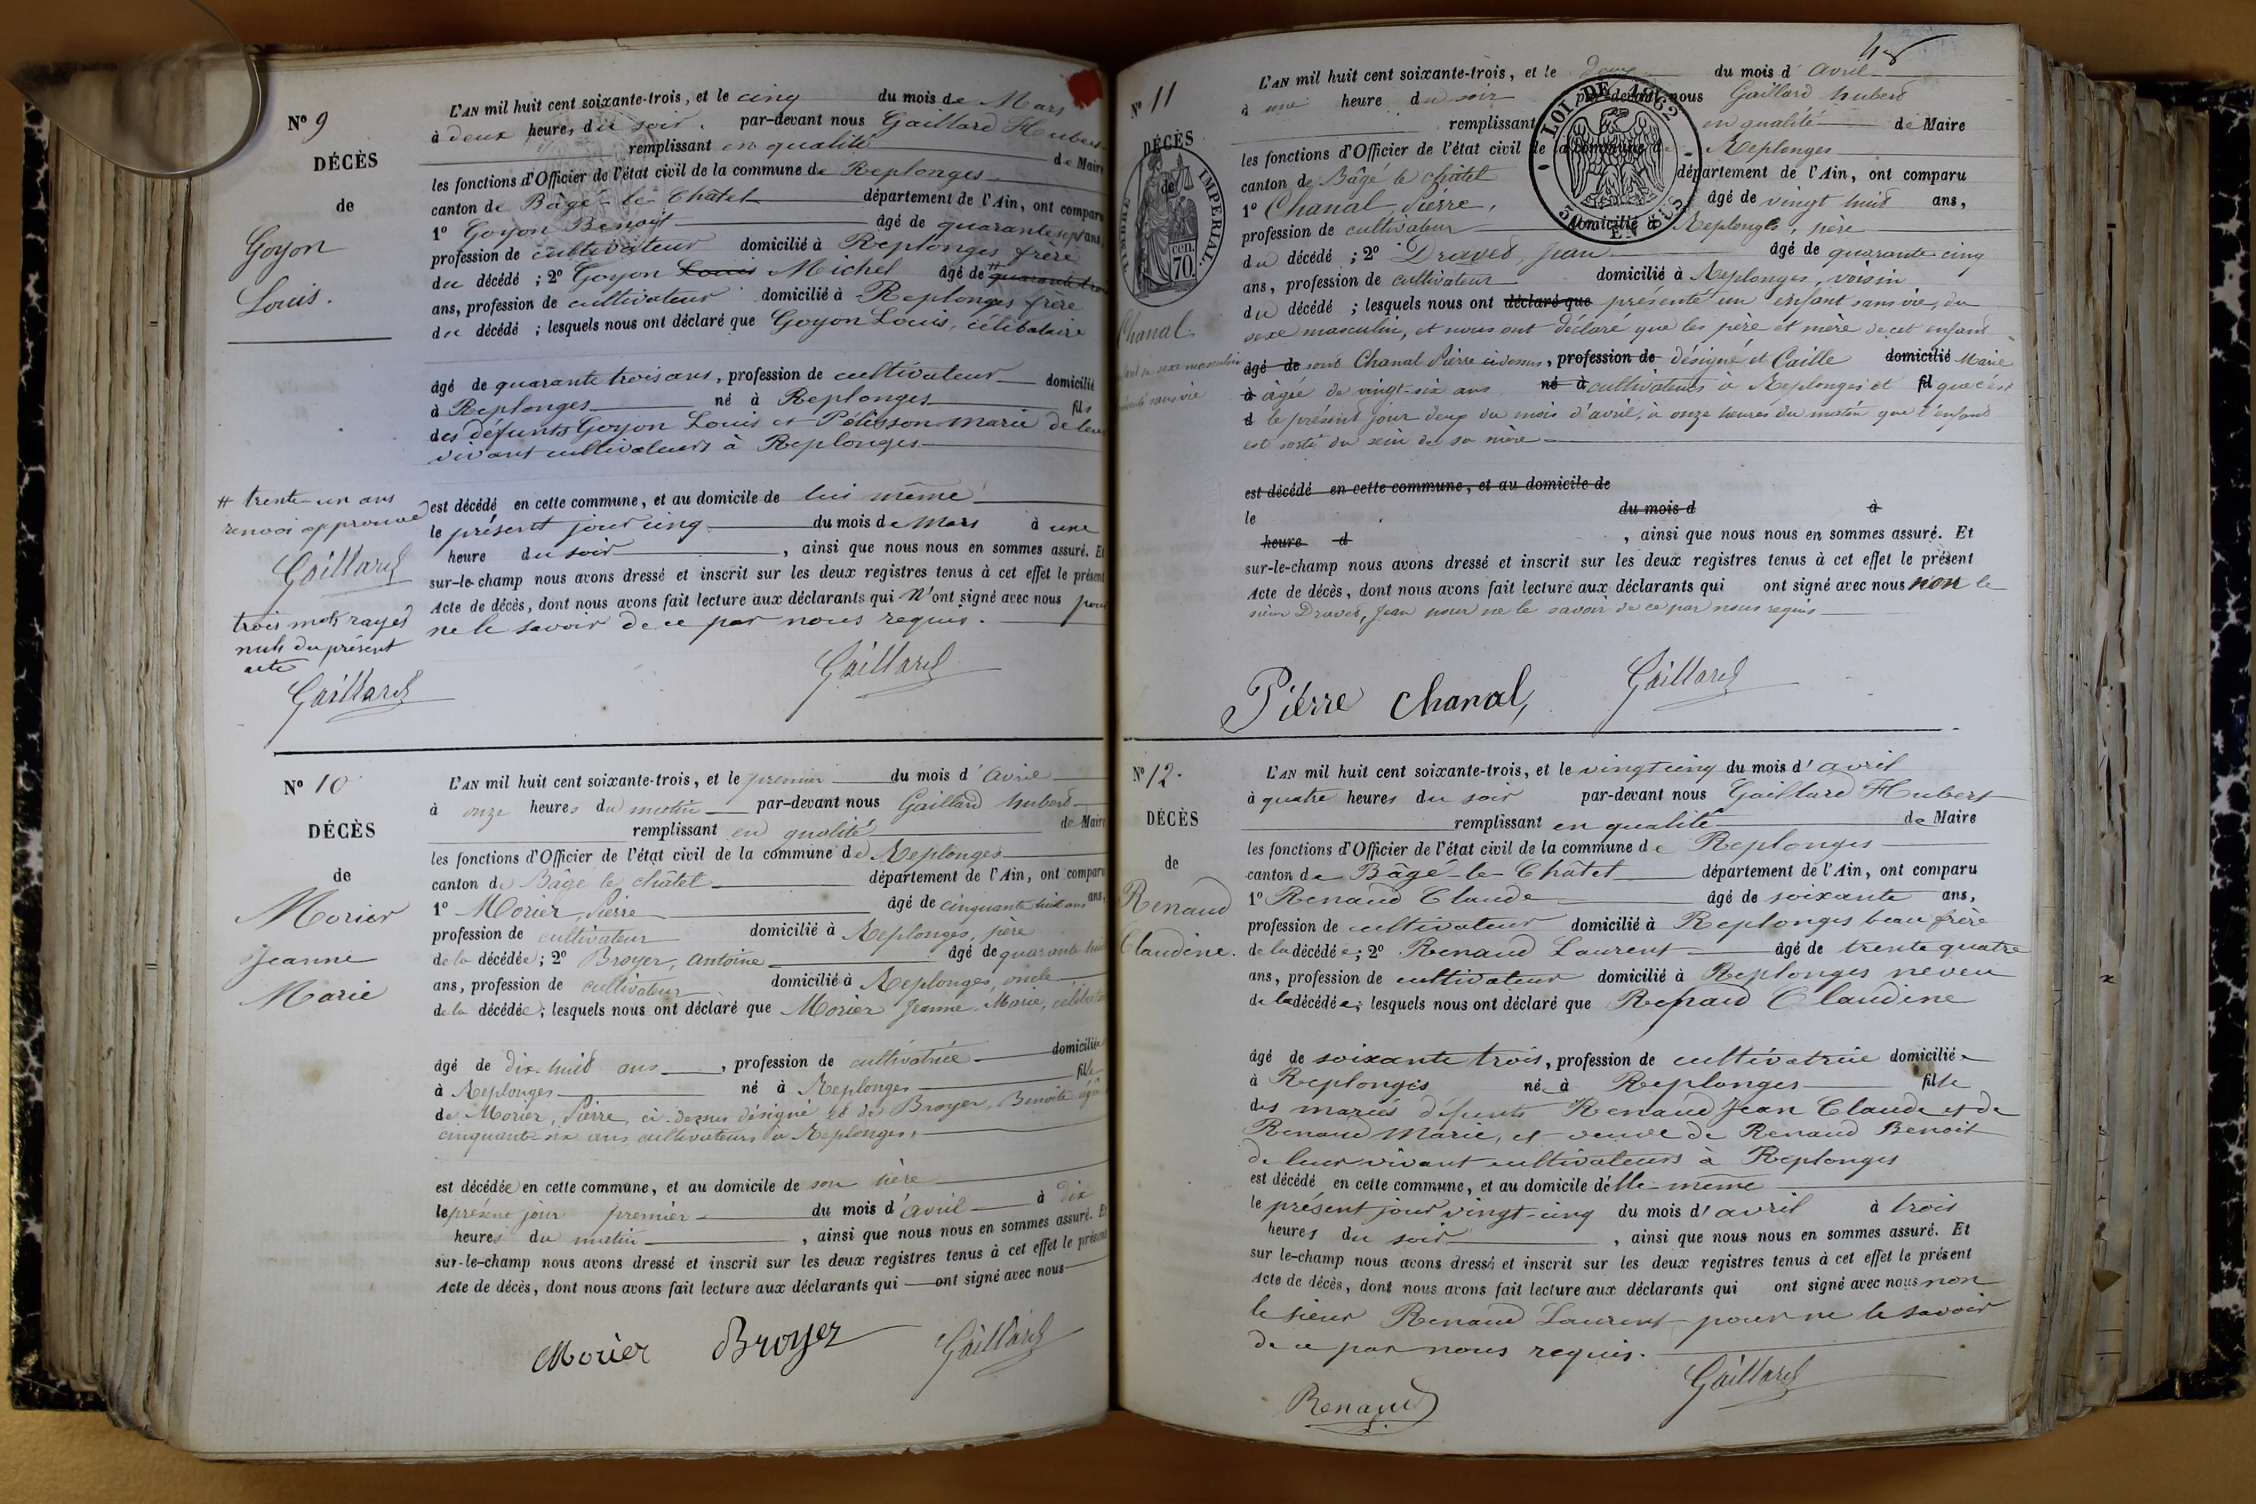 N° 9
DÉCÈS
de
Goyon
Louis.
L'AN mil huit cent soixante-trois, et le cinq du mois de Mars
à deux heures du soir. par-devant nous Gaillard Hubert
remplissant en qualité de Maire
les fonctions d'Officier de l'état civil de la commune de Replonges
canton de Bâgé-le-Châtel département de l'Ain, ont comparu
1° Goyon Benoît âgé de quarante sept ans,
profession de cultivateur domicilié à Replonges frère
du décédé ; 2° Goyon Louis Michel âgé de # quarante tro
ans, profession de cultivateur domicilié à Replonges frère
du décédé ; lesquels nous ont déclaré que Goyon Louis, célibataire
âgé de quarante trois ans, profession de cultivateur domicilié
à Replonges né à Replonges fils
des défunts Goyon Louis et Pélisson Marie de leur
vivant cultivateurs à Replonges
est décédé en cette commune, et au domicile de lui même
le présent jour cinq du mois de Mars à une
heure du soir , ainsi que nous nous en sommes assuré. Et
sur-le-champ nous avons dressé et inscrit sur les deux registres tenus à cet effet le présent
Acte de décès, dont nous avons fait lecture aux déclarants qui n'ont signé avec nous pour
ne le savoir de ce par nous requis.
# trente-un ans
renvoi approuvé
Gaillard
trois mots rayés
nuls du présent
acte
Gaillard
Gaillard
N° 10
DÉCÈS
de
Morier
Jeanne
Marie
L'AN mil huit cent soixante-trois, et le premier du mois d'avril
à onze heures du matin par-devant nous Gaillard hubert
remplissant en qualité de Maire
les fonctions d'Officier de l'état civil de la commune de Replonges
canton de Bâgé le châtel département de l'Ain, ont comparu
1° Morier, Pierre âgé de cinquante huit ans ans,
profession de cultivateur domicilié à Replonges, père
de la décédée; 2° Broyer, antoine âgé de quarante huit
ans, profession de cultivateur domicilié à Replonges, oncle
de la décédée; lesquels nous ont déclaré que Morier Jeanne-Marie, célibataire
âgé de dix-huit ans , profession de cultivatrice domiciliée
à Replonges né à Replonges fille
de Morier, Pierre, ci-dessus désigné et de Broyer, Benoite âgée
cinquante six ans cultivateurs à Replonges,
est décédée en cette commune, et au domicile de son père
le présent jour premier du mois d'avril à dix
heures du matin , ainsi que nous nous en sommes assuré. Et
sur-le-champ nous avons dressé et inscrit sur les deux registres tenus à cet effet le présent
Acte de décès, dont nous avons fait lecture aux déclarants qui ont signé avec nous
Morier Broyer Gaillard
48
N° 11
DÉCÈS
de
TIMBRE IMPÉRIAL.
70 cen.
LOI DE 1862
EN SUS
Chanal
enfant du sexe masculin
présenté sans vie
L'AN mil huit cent soixante-trois, et le deux du mois d'avril
à une heure du soir par-devant nous Gaillard hubert
remplissant en qualité de Maire
les fonctions d'Officier de l'état civil de la commune de Replonges
canton de Bâgé le châtel département de l'Ain, ont comparu
1° Chanal Pierre, âgé de vingt huit ans,
profession de cultivateur domicilié à Replonges, père
du décédé ; 2° Dravet, Jean âgé de quarante cinq
ans, profession de cultivateur domicilié à Replonges, voisin
du décédé ; lesquels nous ont déclaré que présenté un enfant sans vie, du
sexe masculin, et nous ont déclaré que les père et mère de cet enfant
âgé de sont Chanal Pierre ci-dessus, profession de désigné et Caille domicilié Marie
à âgée de vingt-six ans né à cultivateurs à Replonges et fil que c'est
d le présent jour deux du mois d'avril, à onze heures du matin que l'enfant
est sorti du sein de sa mère
est décédé en cette commune, et au domicile de
le du mois d à
heure d , ainsi que nous nous en sommes assuré. Et
sur-le-champ nous avons dressé et inscrit sur les deux registres tenus à cet effet le présent
Acte de décès, dont nous avons fait lecture aux déclarants qui ont signé avec nous non le
sieur Dravet, Jean pour ne le savoir de ce par nous requis
Pierre Chanal, Gaillard
N° 12.
DÉCÈS
de
Renaud
Claudine.
L'AN mil huit cent soixante-trois, et le vingt cinq du mois d'avril
à quatre heures du soir par-devant nous Gaillard Hubert
remplissant en qualité de Maire
les fonctions d'Officier de l'état civil de la commune de Replonges
canton de Bâgé-le-Châtel département de l'Ain, ont comparu
1° Renaud Claude âgé de soixante ans,
profession de cultivateur domicilié à Replonges beau frère
de la décédée; 2° Renaud Laurent âgé de trente quatre
ans, profession de cultivateur domicilié à Replonges neveu
de la décédée; lesquels nous ont déclaré que Renaud Claudine
âgé de soixante trois, profession de cultivatrice domiciliée
à Replonges née à Replonges fille
des mariés défunts Renaud Jean Claude et de
Renaud Marie, et veuve de Renaud Benoit
de leur vivant cultivateurs à Replonges
est décédé en cette commune, et au domicile d'elle-même
le présent jour vingt-cinq du mois d'avril à trois
heures du soir , ainsi que nous nous en sommes assuré. Et
sur le-champ nous avons dressé et inscrit sur les deux registres tenus à cet effet le présent
Acte de décès, dont nous avons fait lecture aux déclarants qui ont signé avec nous non
le sieur Renaud Laurent pour ne le savoir
de ce par nous requis.
Renaud Gaillard